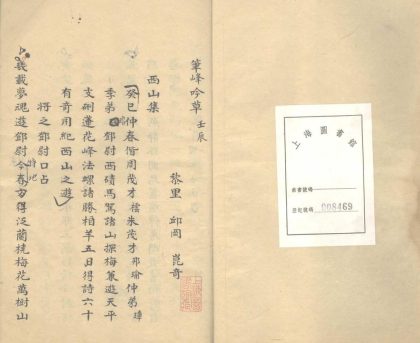 上海圖書館
登記號碼 008469
筆峰吟草 壬辰
黎里 邱岡 崑奇
西山集
癸巳仲春偕周茂才朱茂才邦瑜仲弟璋
季弟鄧尉西磧馬駕諸山探梅兼遊天平
支硎蓮花峰法螺諸勝相羊五日得詩六十
有奇用紀西山之遊
將之鄧尉口占
幾載夢魂遊鄧尉今春方得泛蘭梅花萬樹山
特地